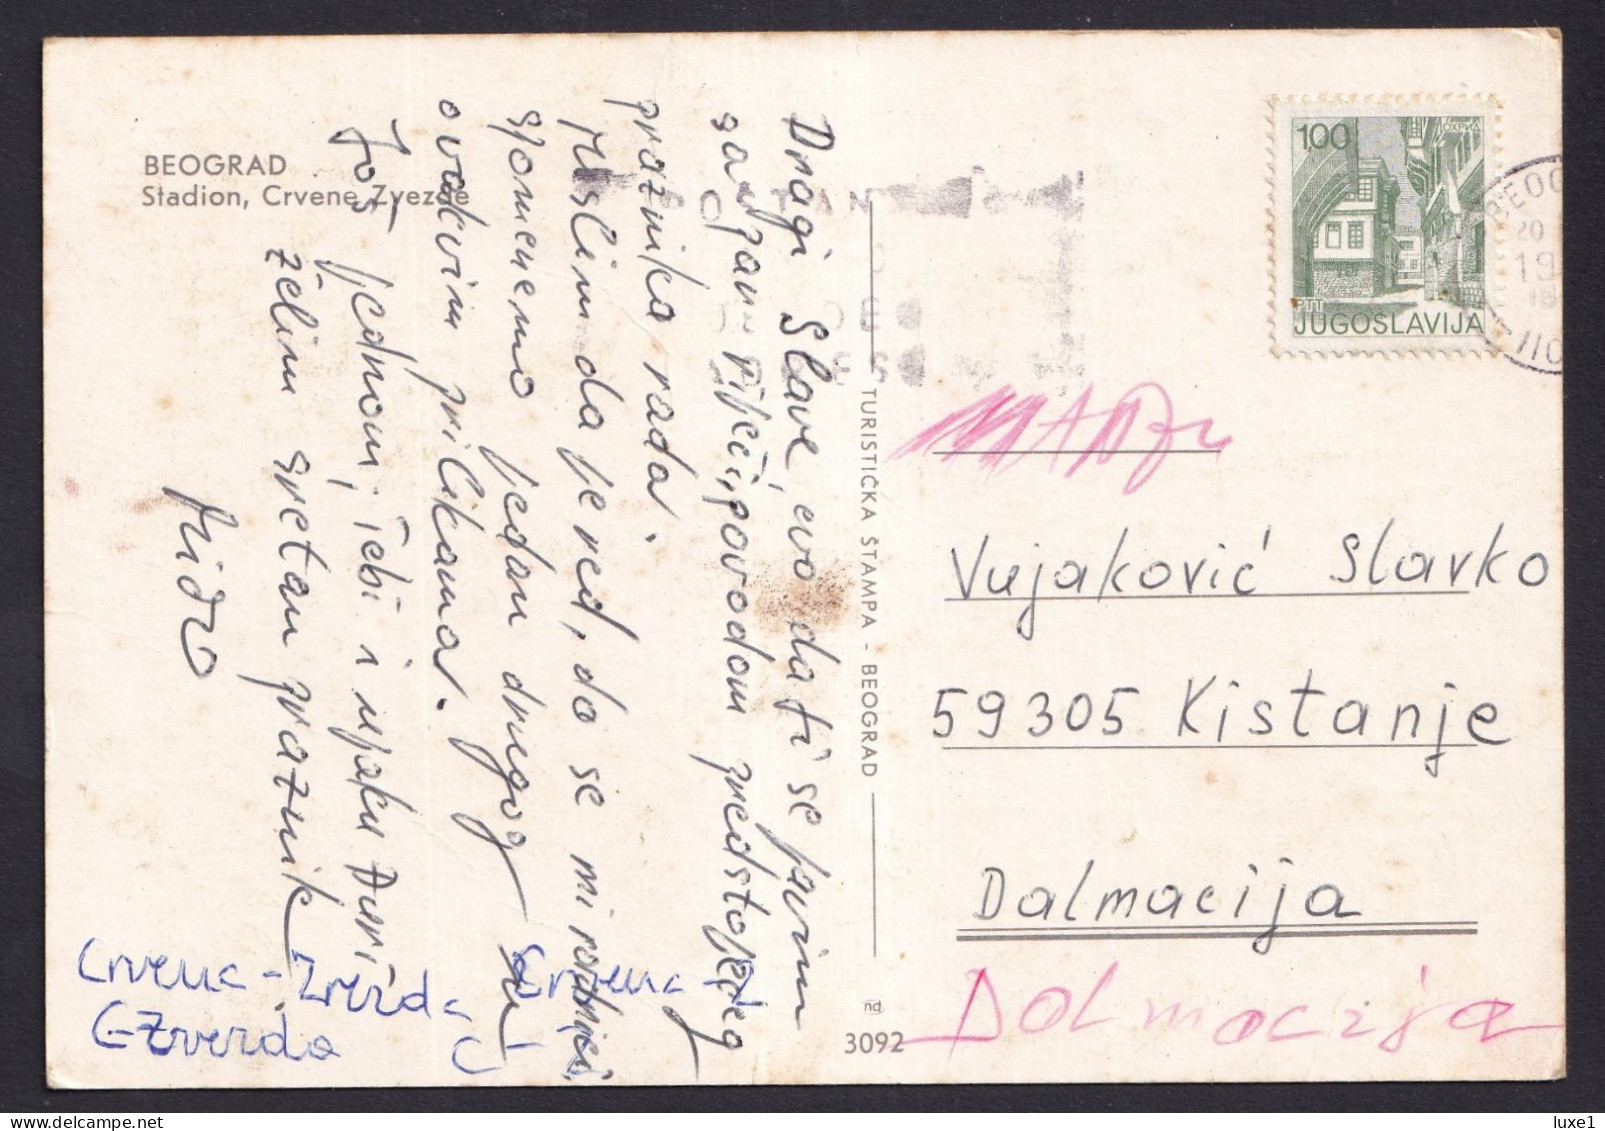 BEOGRAD
Stadion, Crvene Zvezde
Dragi Slave, evo da ti se javim
sa
riječi, povodom predstojećeg
praznika rada.
Mislim da je red, da se mi radnici
spomenemo jedan drugog u
ovakvim prilikama.
Još jednom, Tebi i ujaku Đuri
želim sretan praznik
Miđo
Crvena-Zvezda Crvena-Z
C-Zvezda C-
TURISTIČKA ŠTAMPA - BEOGRAD
nd
3092
100
ОХРИД
PTT
JUGOSLAVIJA
BEOG
20
19
18
110
Vujaković Slavko
59305 Kistanje
Dalmacija
Dalmacija
luxe1